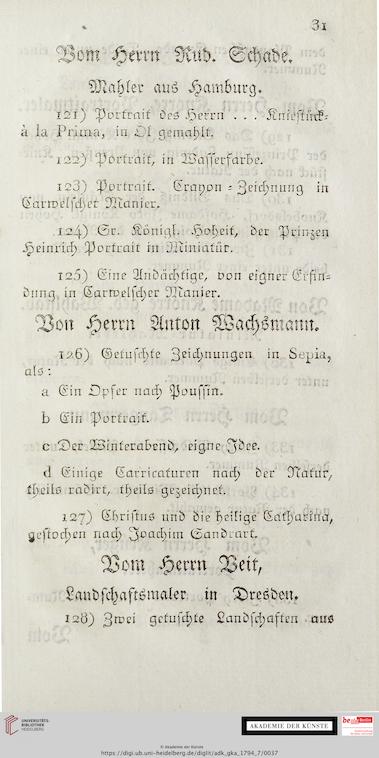 31
Vom Herrn Rud. Schade.
Mahler aus Hamburg.
121) Portrait des Herrn . . . Kniestück-
à la Prima, in Öl gemahlt.
122) Portrait, in Wasserfarbe.
123) Portrait. Crayon-Zeichnung in
Carwelscher Manier.
124) Sr. Königl. Hoheit, der Prinzen
Heinrich Portrait in Miniatür.
125) Eine Andächtige, von eigner Erfin-
dung, in Carwelscher Manier.
Von Herrn Anton Wachsmann.
126) Getuschte Zeichnungen in Sepia,
als:
a Ein Opfer nach Poussin.
b Ein Portrait.
c Der Winterabend, eigne Idee.
d Einige Carricaturen nach der Natur,
theils radirt, theils gezeichnet.
127) Christus und die heilige Catharina,
gestochen nach Joachim Sandrart.
Vom Herrn Veit,
Landschaftsmaler in Dresden.
128) Zwei getuschte Landschaften aus
UNIVERSITÄTS-
BIBLIOTHEK
HEIDELBERG
AKADEMIE DER KÜNSTE
© Akademie der Künste
https://digi.ub.uni-heidelberg.de/diglit/adk_gka_1794_7/0037